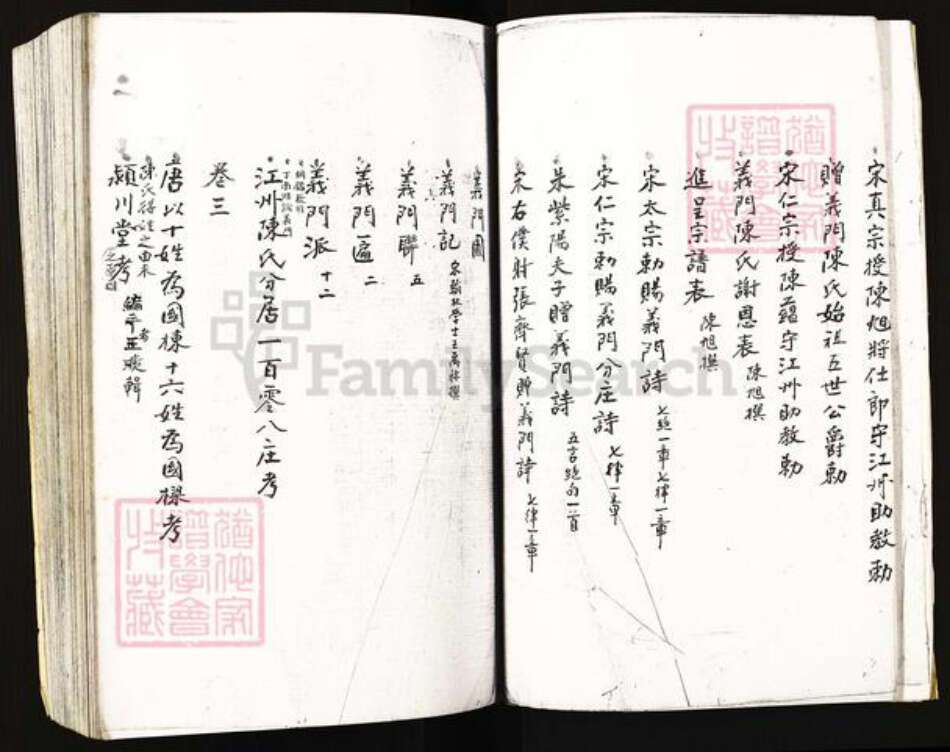 宋真宗授陳旭將仕郎守江州助教勅
贈義門陳氏始祖五世公爵勅
宋仁宗授陳蘊守江州助教勅
義門陳氏謝恩表 陳旭撰
進呈宗譜表 陳旭撰
宋太宗勅賜義門詩 七絕一章七律一章
宋仁宗勅賜義門分庄詩 七律一章
朱紫陽夫子贈義門詩 五言絕句一首
宋右僕射張齊賢贈義門詩 七律一章
義門圖
義門記 宋翰林學士王禹偁撰
義門聯 五
義門匾 二
義門派 十二
江州陳氏分居一百零八庄考
卷三
唐以十姓為國棟十六姓為國樑考
陳氏得姓之由來
潁川堂考
FamilySearch